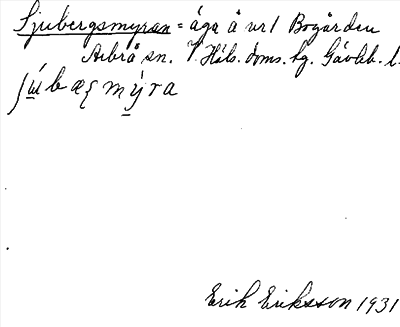 Sjubergsmyran = äga å nr 1 Bogården
Arbrå sn. V. Häls. doms. hg. Gävleb. l.
ʃú̱bæʂmy̱ra
Erik Eriksson 1931